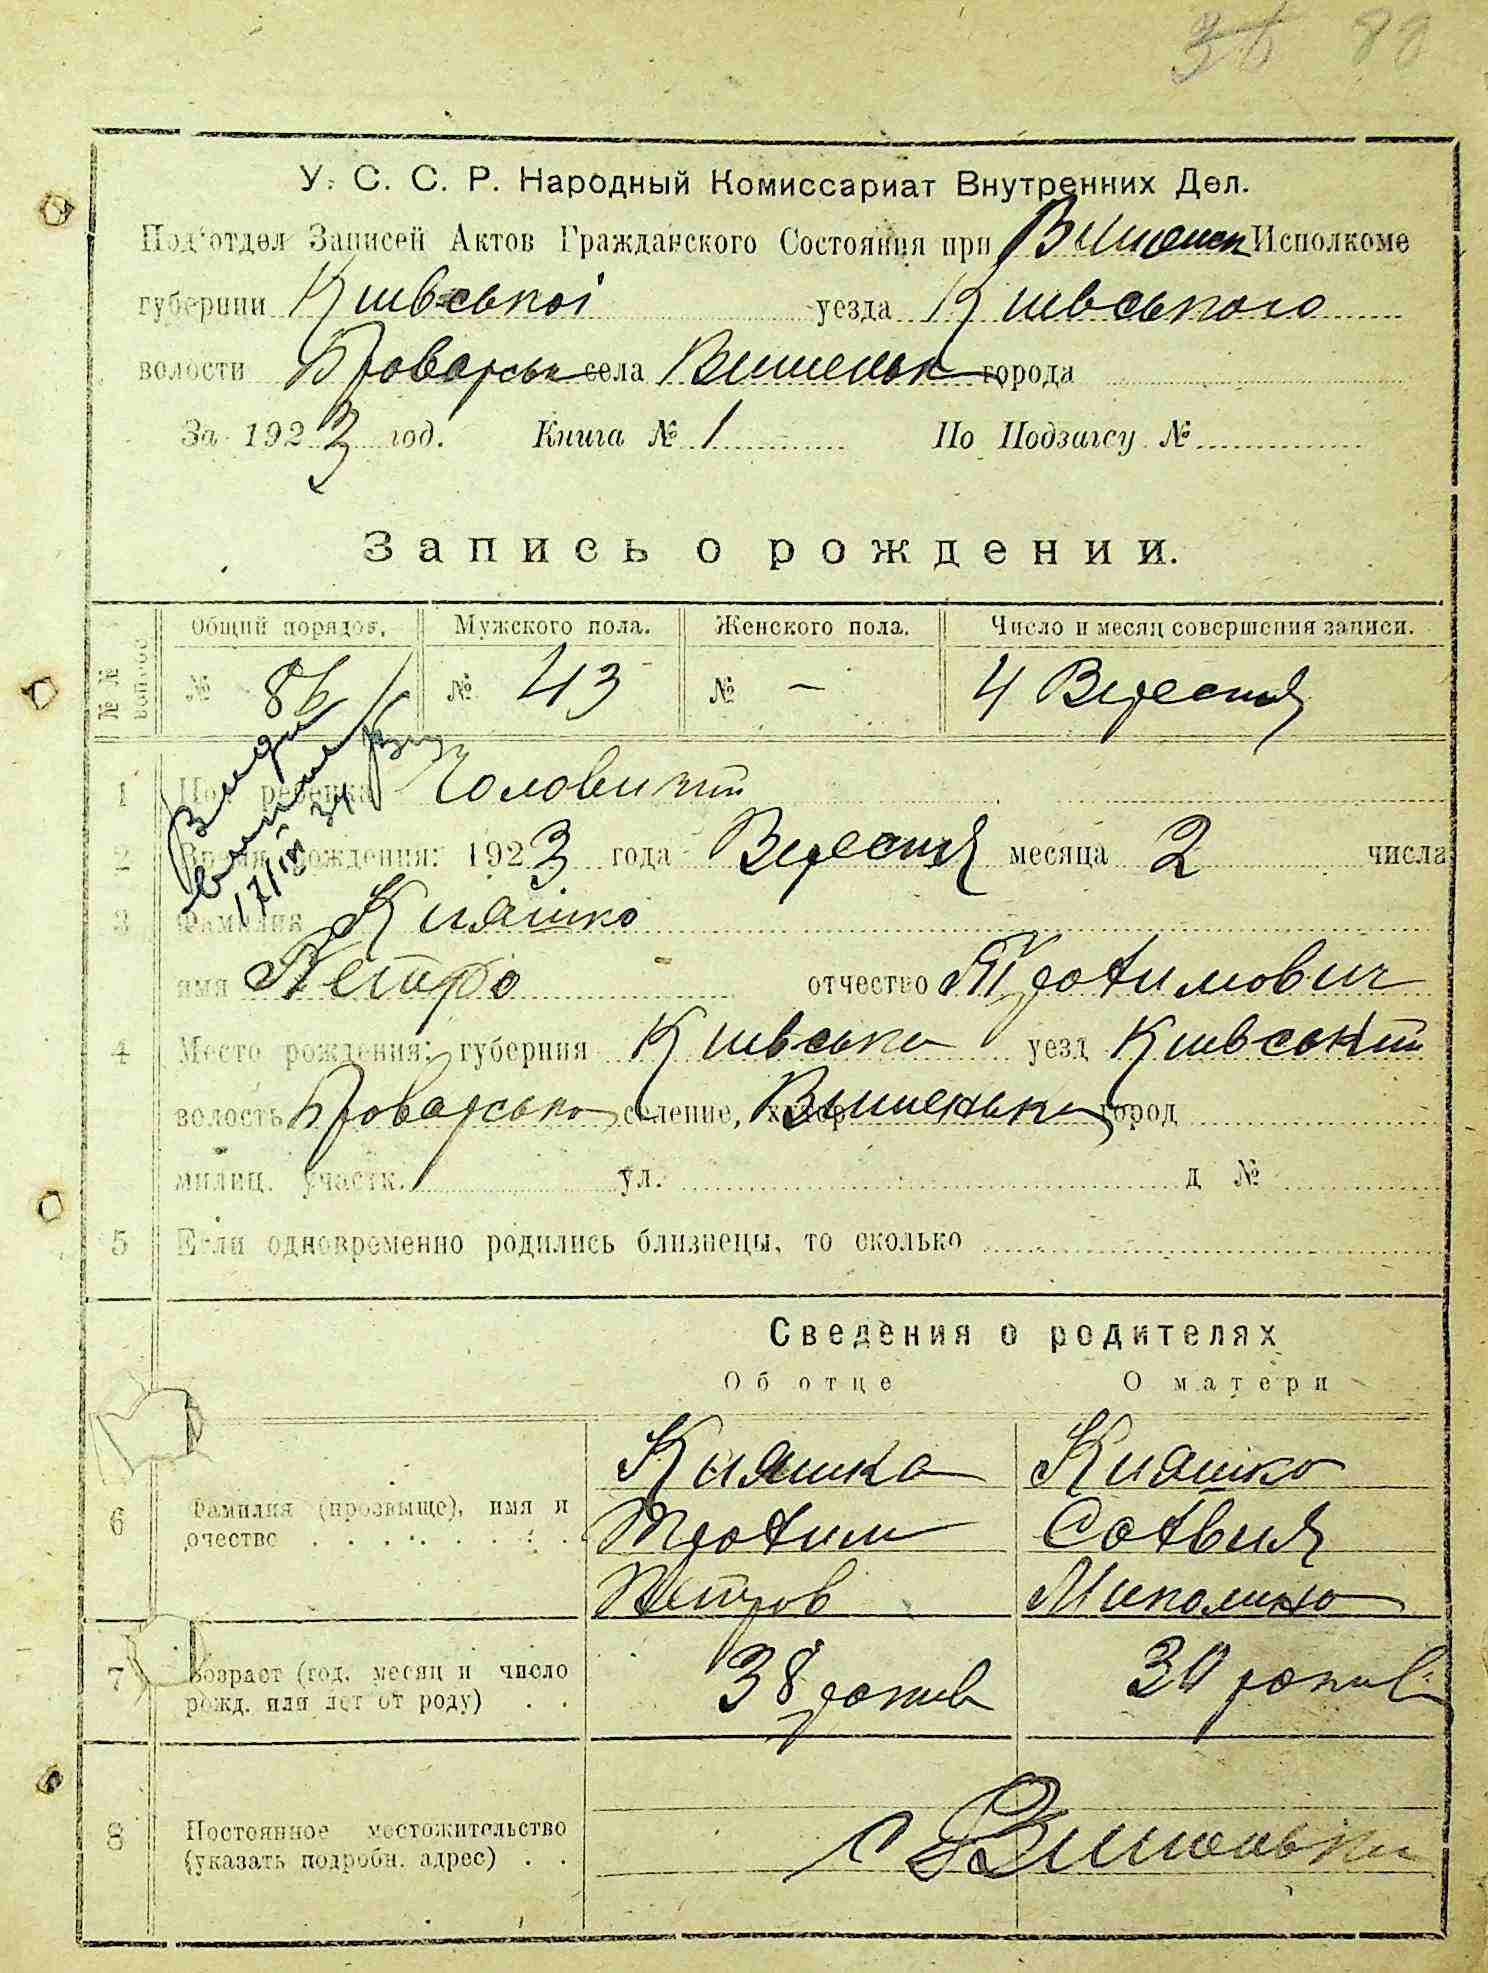 У. С. С. Р. Народный Комиссариат Внутренних Дел.
Под'отдел Записей Актов Гражданского Состояния при Вишенск Исполкоме
губернии Київської уезда Київського
волости Броварськ села Вишеньк города
За 1923 год. Книга № 1 По Подзагсу №
Запись о рождении.
№ № вопрос Общий порядов. Мужского пола. Женского пола. Число и месяц совершения записи.
№ 86 № 43 № – 4 Вересня
1 Пол ребенка Чоловичий
2 Время рождения: 1923 года Вересня месяца 2 числа
3 Фамилия Кияшко
имя Петро отчество Трофимович
4 Место рождения: губерния Київська уезд Київський
волость Броварська селение, хутор Вишеньки город
милиц. участк. ул. д №
5 Если одновременно родились близнецы, то сколько
Сведения о родителях
Об отце О матери
Кияшко Кияшко
6 Фамилия (прозвыще), имя и
очество Трофим Софвия
Петров Миколаивна
7 Возраст (год, месяц и число
рожд. или лет от роду) 38 років 30 років
8 Постоянное местожительство
(указать подробн. адрес) с Вишеньки